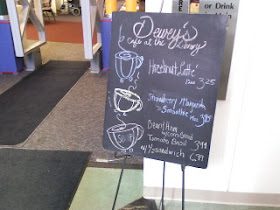 Dewey's
Cafe at the Library
Hazelnut Latte
3.25
Strawberry Mango
Smoothie
Bean/Ham
w/Corn Bread
Tomato Basil 3.99
w/ 1/2 Sandwich 6.79
Soup
or Drink